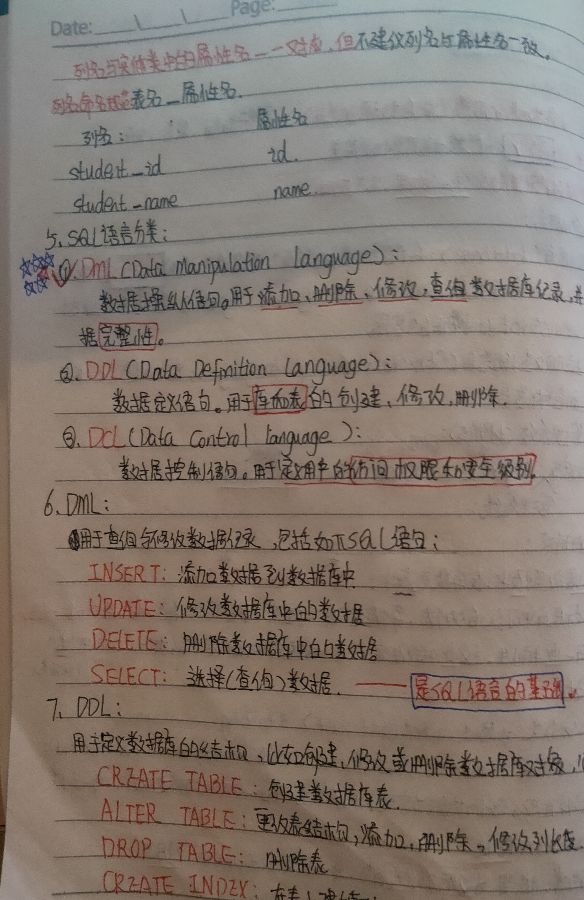 Date: Page:
列名与实体类中的属性名一一对应，但不建议列名与属性名一致。
列名命名规范表名_属性名.
列名： 属性名
student_id id.
student_name name
5、SQL语言分类：
①.DML(Data Manipulation language)：
数据操纵语句。用于添加、删除、修改，查询数据库记录，并
据完整性。
②.DDL(Data Definition Language)：
数据定义语句。用于库和表的创建、修改，删除.
③.DCL(Data Control language)：
数据控制语句。用于定义用户的访问权限和安全级别。
6、DML：
用于查询与修改数据记录，包括如下SQL语句；
INSERT：添加数据到数据库中
UPDATE：修改数据库中的数据
DELETE：删除数据库中的数据
SELECT：选择(查询)数据. 是SQL语言的基础。
7、DDL：
用于定义数据库的结构，比如创建，修改或删除数据库对象，
CREATE TABLE：创建数据库表.
ALTER TABLE：更改表结构，添加，删除，修改列长度
DROP TABLE：删除表
CREATE INDEX：在表上建